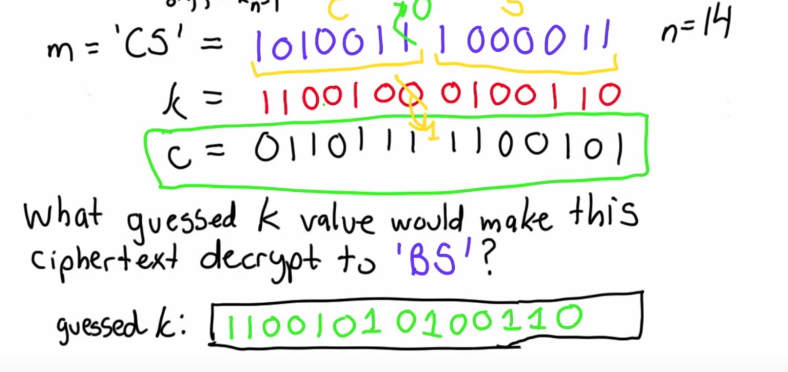 C 0 S
m = 'CS' = 1010011 1000011 n=14
k = 1100100 0100110
1
c = 0110111 1100101
What guessed k value would make this
ciphertext decrypt to 'BS'?
guessed k: 1100101 0100110